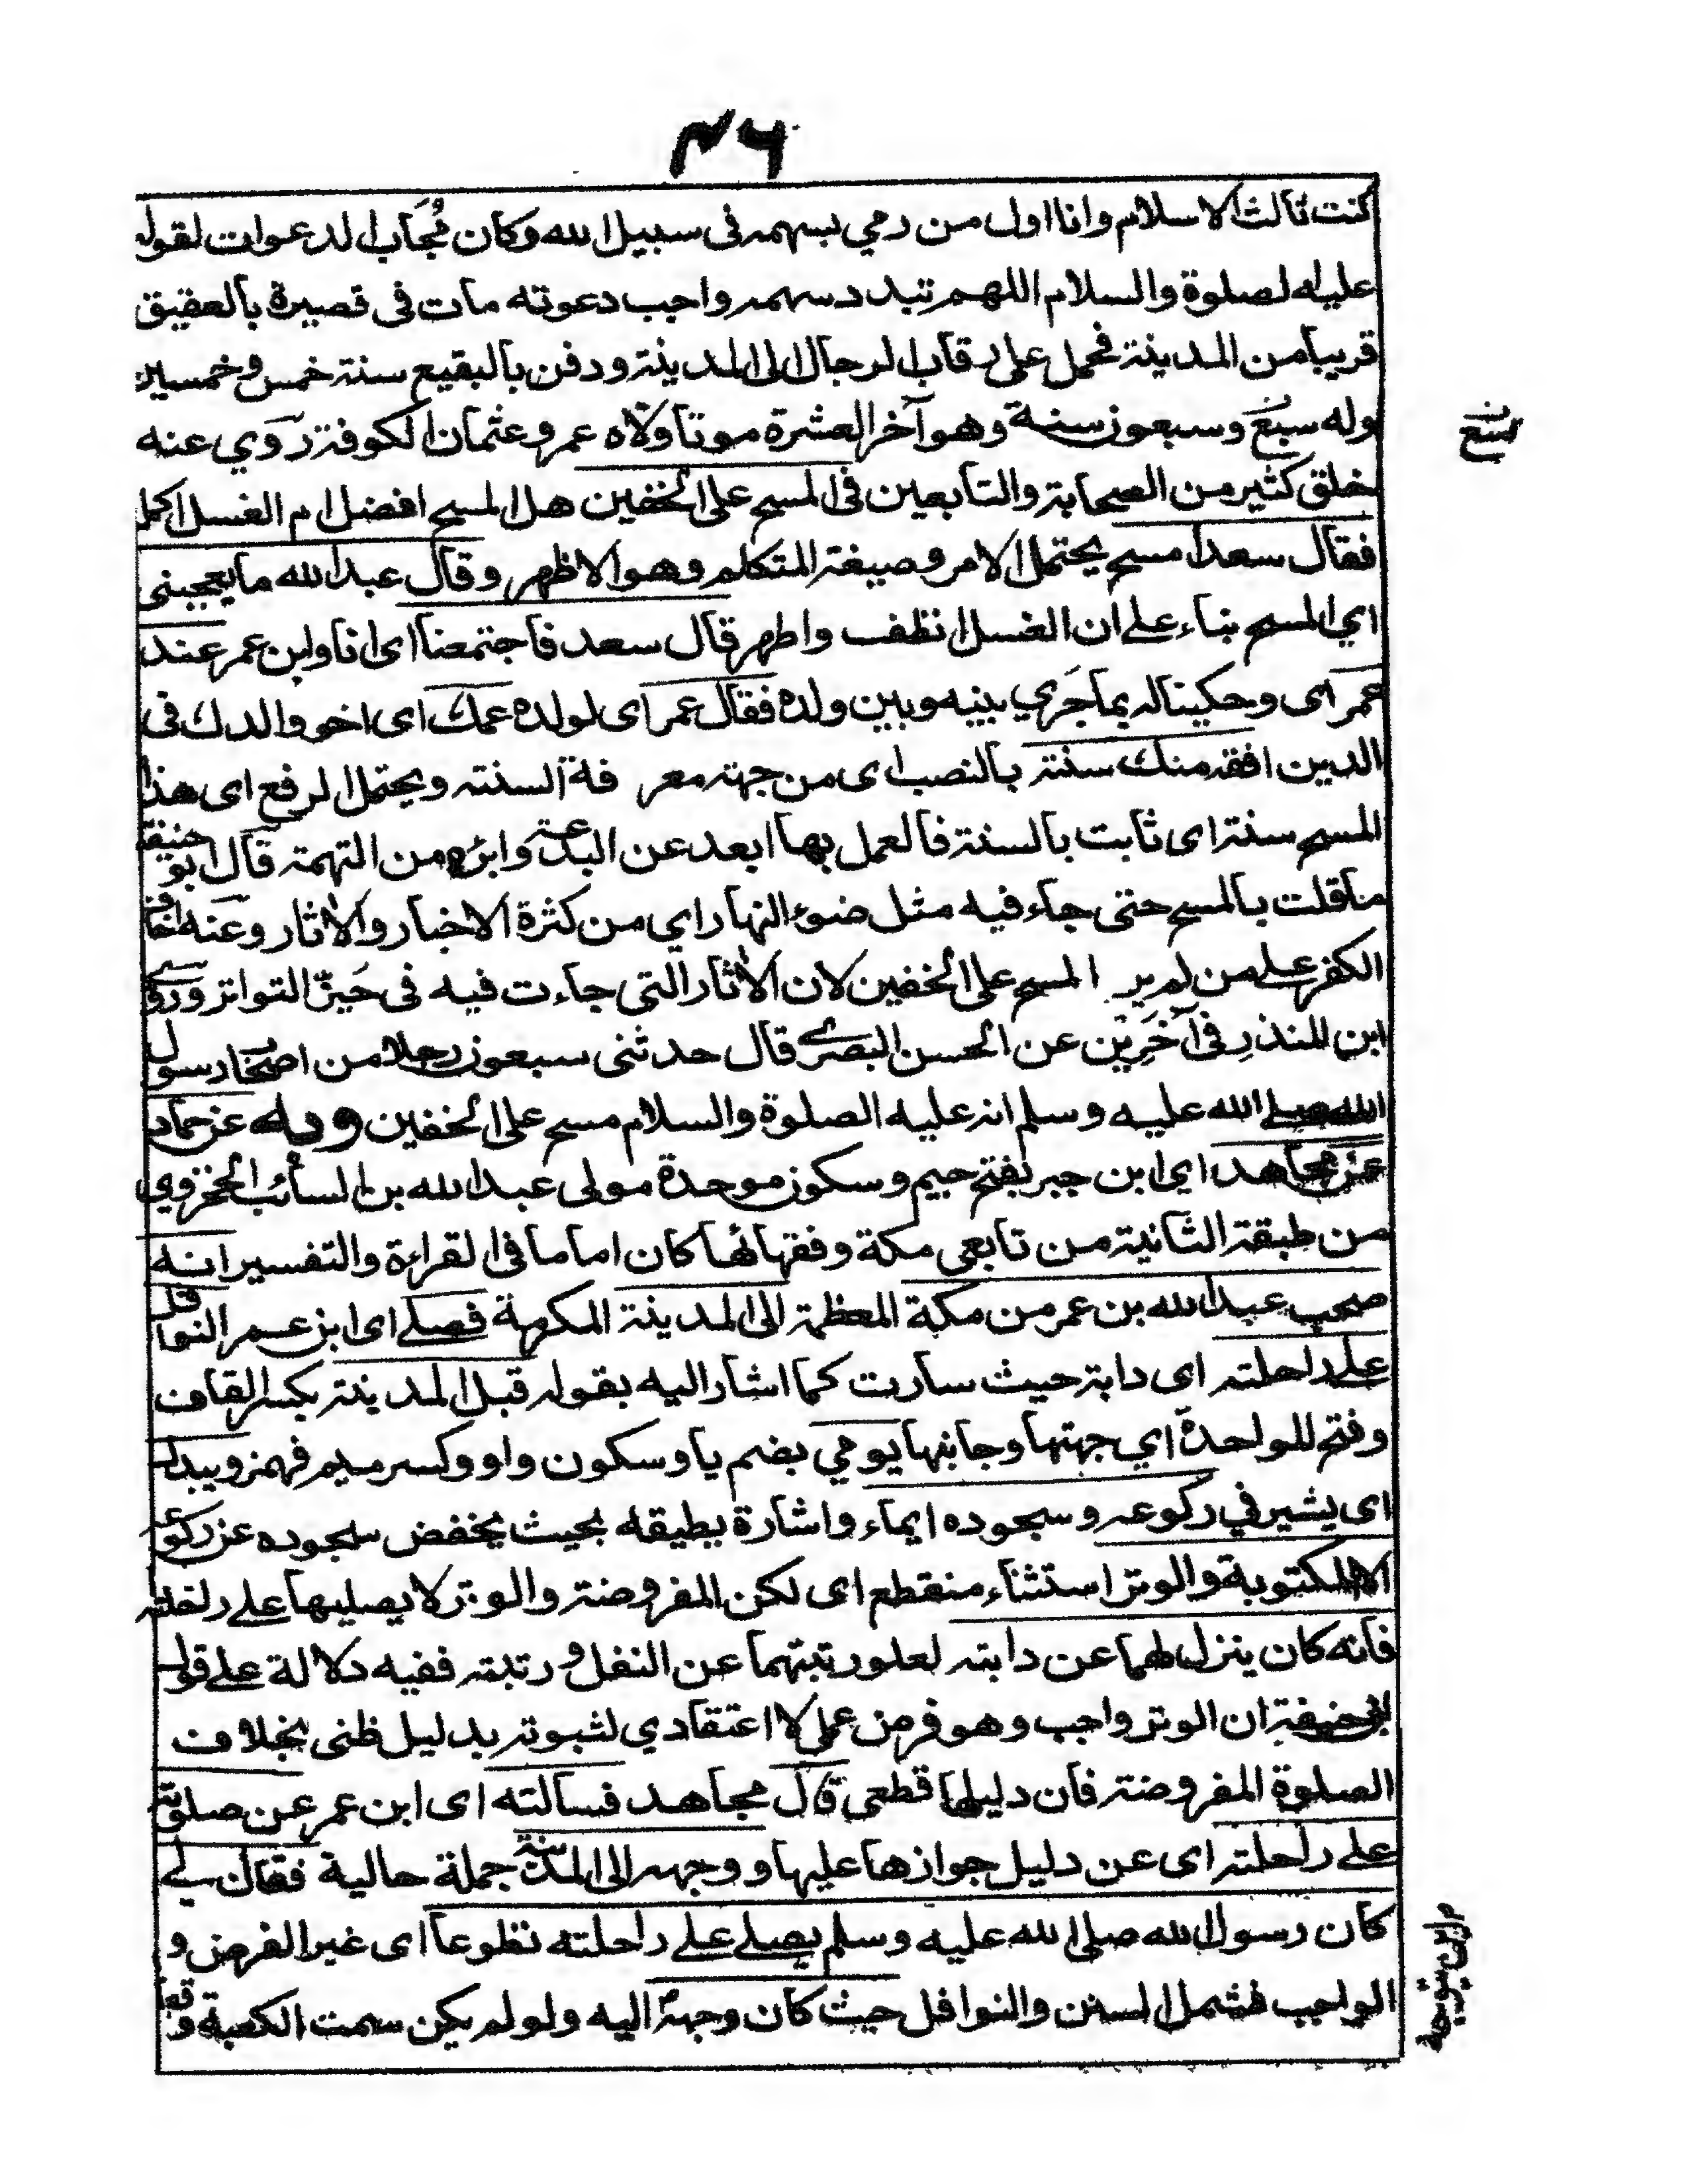 ٤٦
كنت ثالث الاسلام وانا اول من رمي بسهم فى سبيل الله وكان مُجَاب الدعوات لقوله
عليه الصلوة والسلام اللهم سدد سهمه واجب دعوته مات فى قصيرة بالعقيق
قريبا من المدينة فحمل على رقاب الرجال الى المدينة ودفن بالبقيع سنة خمس وخمسين
وله سبع وسبعون سنة وهو آخر العشرة موتا ولاه عمر وعثمان الكوفة روي عنه
تسع
خلق كثير من الصحابة والتابعين فى المسح على الخفين هل المسح افضل ام الغسل اكمل
فقال سعد امسح يحتمل الامر وصيغة المتكلم وهو الاظهر وقال عبد الله ما يعجبنى
اي المسح بناء على ان الغسل انظف واطهر قال سعد فاجتمعنا اى انا وابن عمر عند
عمر اى وحكينا له بما جَري بينه وبين ولده فقال عمر اى لولده عمك اى اخو والدك فى
الدين افقه منك سنة بالنصب اى من جهة معرفة السنة ويحتمل الرفع اى هذا
المسح سنة اى ثابت بالسنة فالعمل بها ابعد عن البدعة وابرء من التهمة قال ابو حنيفة
ما قلت بالمسح حتى جاء فيه مثل ضوء النهار اي من كثرة الاخبار والاثار وعنه اخاف
الكفر على من لم ير المسح على الخفين لان الاثار التى جاءت فيه فى حَيزّ التواتر وروى
ابن المنذر فى آخَرِيْن عن الحسن البصرى قال حدثنى سبعون رجلا من اصحاب رسول
الله صلى الله عليه وسلم انه عليه الصلوة والسلام مسح على الخفين وبه عن حماد
عن مجاهد اي ابن جبر بفتح جيم وسكون موحدة مولى عبد الله بن السائب المخزومي
من طبقة الثانية من تابعى مكة وفقهائها كان اماما فى القراءة والتفسير انه
صحب عبد الله بن عمر من مكة المعظمة الى المدينة المكرمة فصلى اى ابن عمر النوافل
على راحلته اى دابته حيث سارت كما اشار اليه بقوله قبل المدينة بكسر القاف
وفتح للواحدة اي جهتها وجانبها يومي بضم يا وسكون واو وكسر ميم فهمز ويبدل
اى يشير في ركوعه وسجوده ايماء واشارة يطيقه بحيث يخفض سجوده عن ركوعه
الا المكتوبة والوتر استثناء منقطع اى لكن المفروضة والوتر لا يصليها على راحلته
فانه كان ينزل لهما عن دابته لعلو رتبتهما عن النفل ورتبته ففيه دلالة على قول
ابى حنيفة ان الوتر واجب وهو فرض عملى لا اعتقادي لثبوته بدليل ظنى بخلاف
الصلوة المفروضة فان دليلها قطعى قال مجاهد فسالته اى ابن عمر عن صلوته
على راحلته اى عن دليل جوازها عليها ووجهه الى المدينة جملة حالية فقال لى
كان رسول الله صلى الله عليه وسلم يصلى على راحلته تطوعا اى غير الفرض و
الواجب فشمل السنن والنوافل حيث كان وجهه اليه ولو لم يكن سمت الكعبة وقد